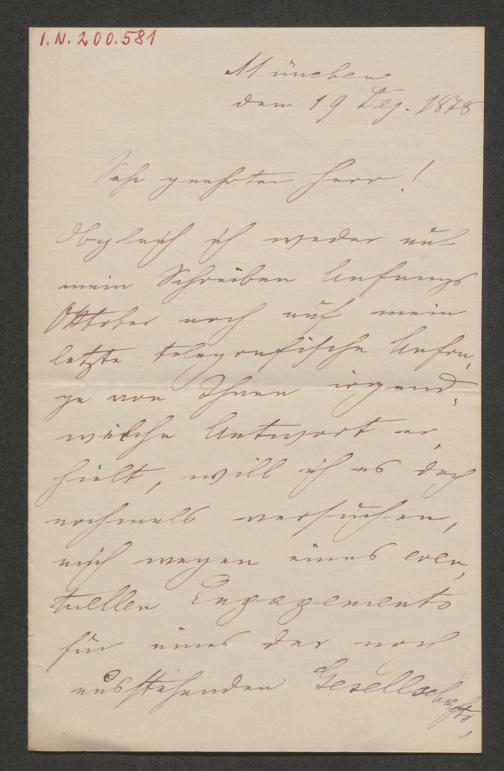 I.N. 200.581
München
den 19 Dez. 1878
Sehr geehrter Herr!
Obgleich ich weder auf
mein Schreiben Anfangs
Oktober noch auf mein
letzte telegrafische Anfra-
ge von Ihnen irgend-
welche Antwort er-
hielt, will ich es doch
nochmals versuchen,
mich wegen eines even-
tuellen Engagements
für eines der noch
ausstehenden Gesellschafts-